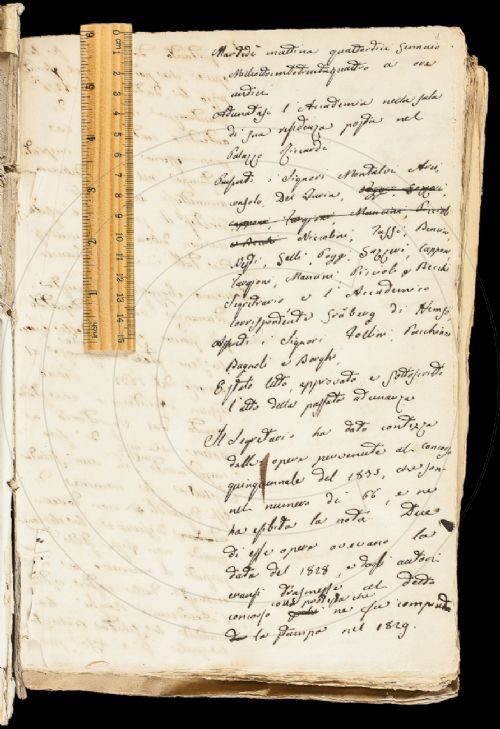 Martedì mattina quattordici Gennaio
Milleottocentotrentaquattro a ore
undici
Adunatasi l'Accademia nella sala
di sua residenza posta nel
Palazzo Riccardi
Presenti i Signori Montalvi Arci-
consolo, Del Furia, Poggi Gazzeri
Capponi, Targioni, Mancini, Piccioli
e Becchi Niccolini, Tassi, Bencini
Nesti, Selli, Poggi, Gazzeri, Capponi
Targioni, Mancini, Piccioli e Becchi
Segretario e l'Accademico
corrispondente Gräberg di Hemsö,
Assenti i Signori, Follini Pacchiani
Bagnoli e Borghi.
È stato letto, approvato e sottoscritto
l'atto della passata adunanza
Il Segretario ha dato contezza
delle opere pervenute al concorso
quinquennale del 1835, che son
nel numero di 66, e ne
ha esibita la nota. Due
di esse opere avevano la
data del 1828, e dagli autori
eransi trasmesse al detto
cosa pretesa che
concorso ne fu compiuta
la stampa nel 1829.